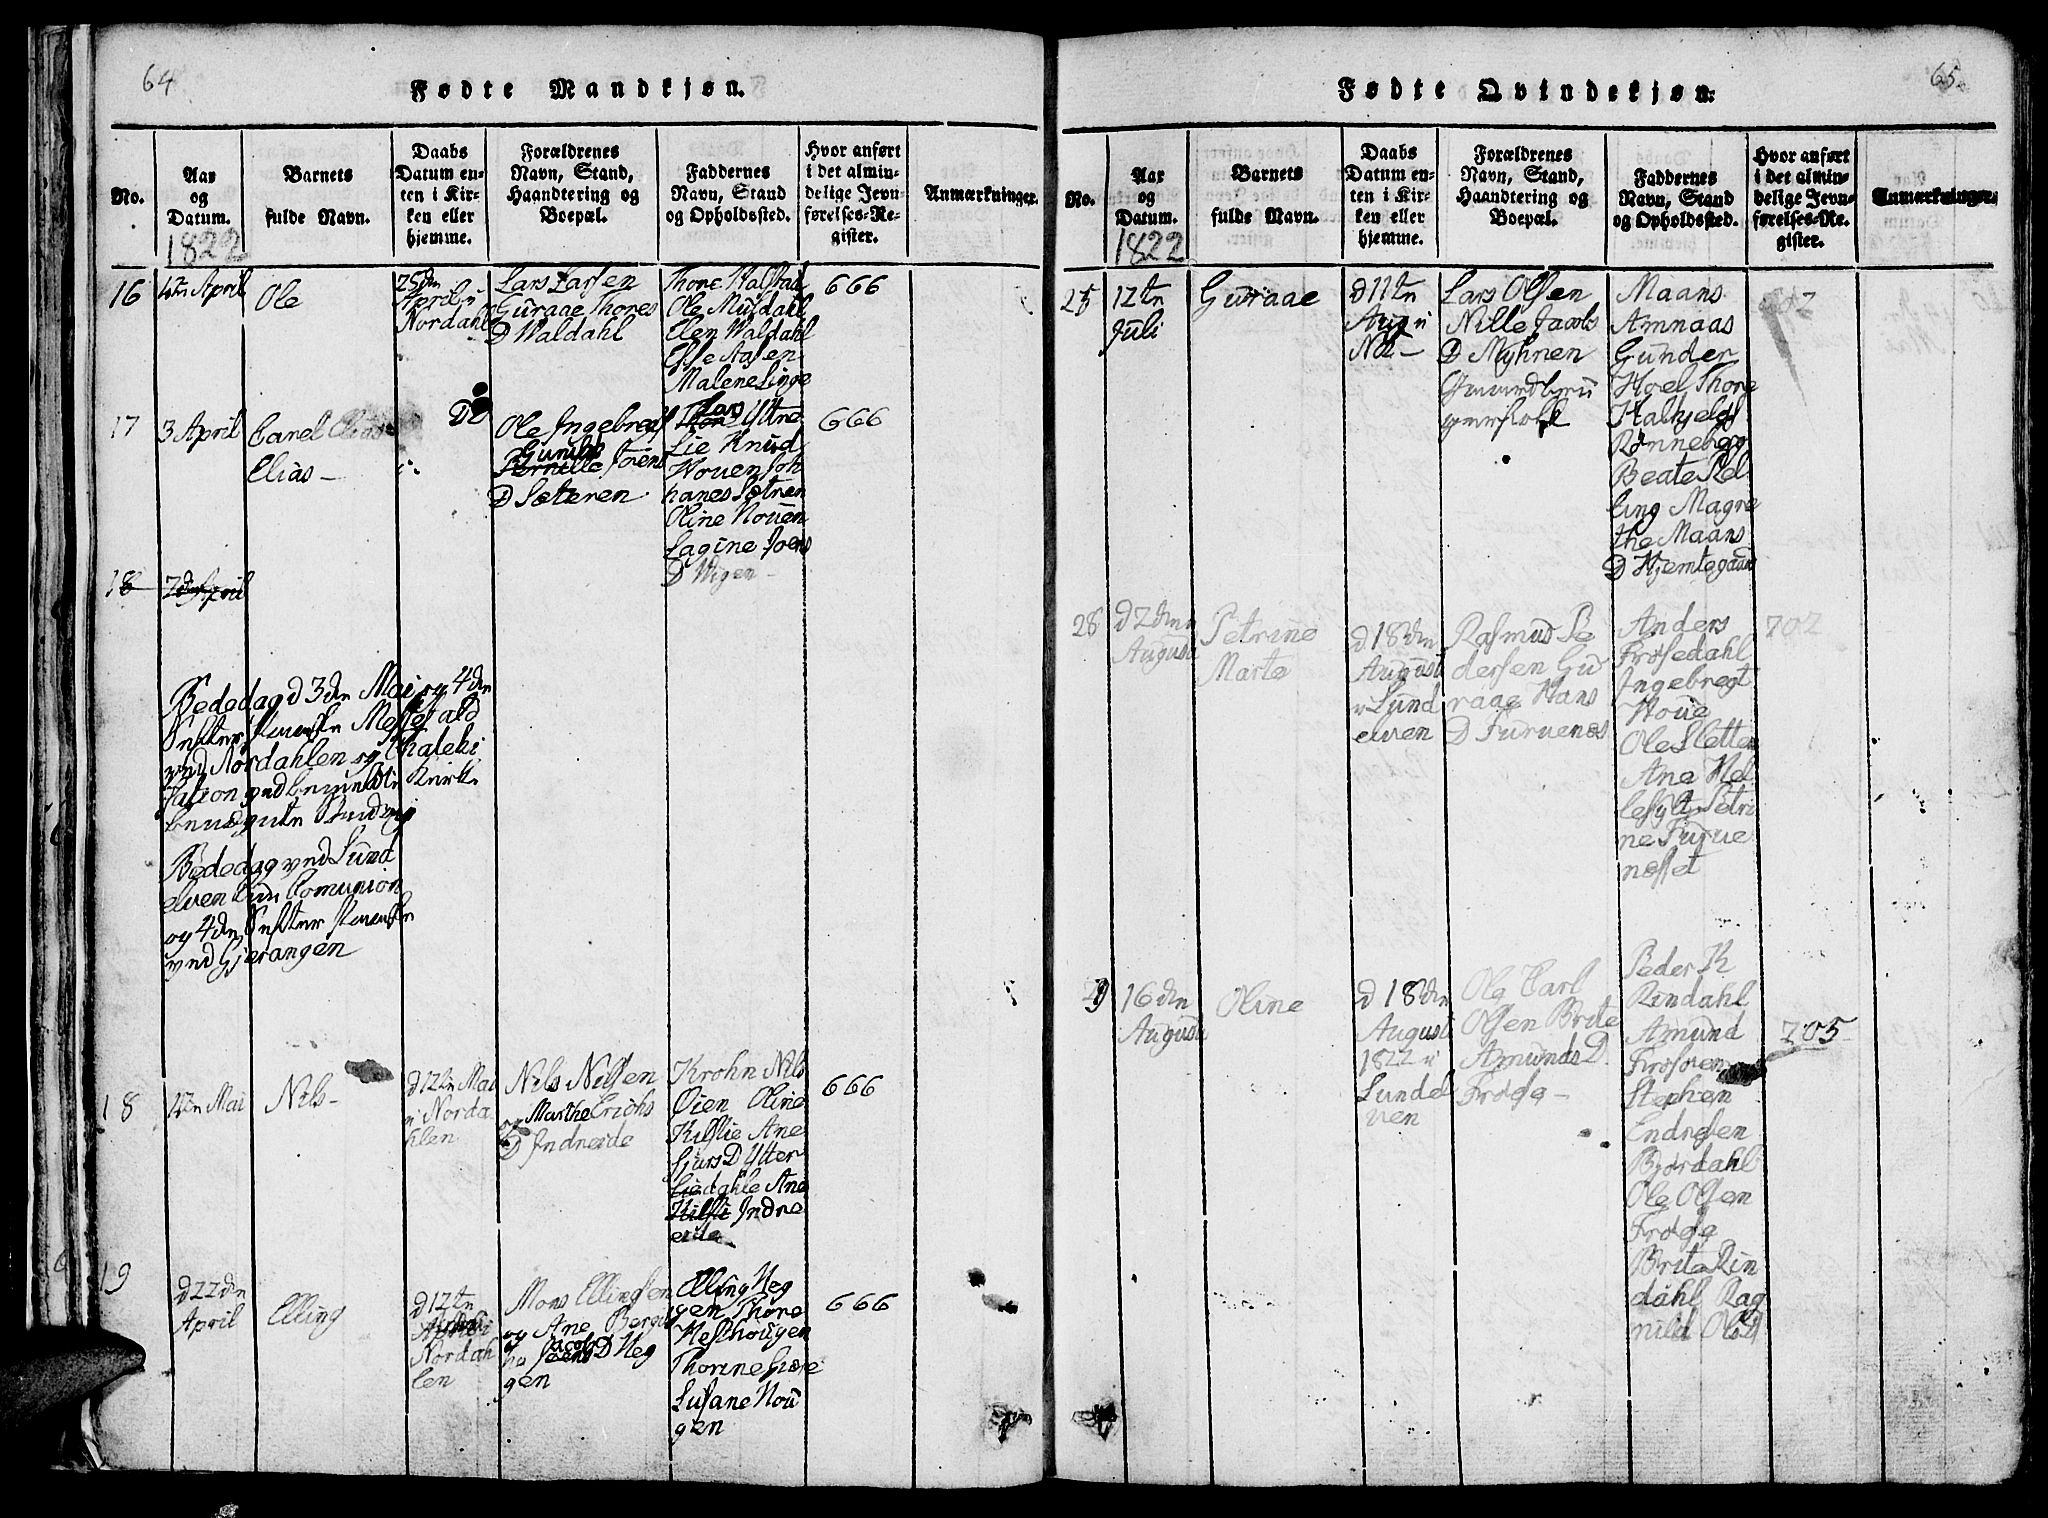 64
Fødte Mandkjøn.
No.
Aar
og
Datum.
1822
Barnets
fulde Navn.
Daabs
Datum en-
ten i Kir-
ken eller
hjemme.
Forældrenes
Navn, Stand,
Haandtering og
Boepæl.
Faddernes
Navn, Stand
og Opholdssted.
Hvor anført
i det almin-
delige Jevn-
førelses-Re-
gister.
Anmærkninger.
16
April
Ole
25de
April i
Nordahl
Lars Larsen
Guraae Thores
D Waldahl
Thore Halstad
Ole Muldahl
Elen Waldahl
Aasen
Malene Linge
666
17
3 April
Carel Elias
Elias
Do
Ole Ingebregt
Gunild
Pernille Joens
D Sæteren
Lars Yttre
Lie Knud
Houen Joh
hanes Sætren
Oline Houen
Lagine Joens
D Wigen
666
18
7de April
Bededag d 3den Mai og 4de
Messefald
ved Nordahlen og Chateki
sation ved bemeldte Kirke
Bededag ved Lund
elven Comunion
og 4de
ved Gjerangen
18
Mai
Nils
d 12te Mai
i Norda
hlen
Nils Nilsen
og Marthe Erichs
D Indreide
Krohn Nils
Øien Oline
Kilstie Ane
Sjurs D Ytter
Liedahle Ane
Kilsti Indre
eide
666
19
d 22den
April
Elling
d 12te
Nordah
len
Mons Ellingsen
og Ane Bergi
tha Jacobs D Heg
gen
Elling Heg
gen Thore
Hesthougen
Thorine Giære
Susane Hou
gen
666
65
Fødte Qvindekjøn.
No.
Aar
og
Datum.
1822
Barnets
fulde Navn.
Daabs
Datum en-
ten i Kir-
ken eller
hjemme.
Forældrenes
Navn, Stand,
Haandtering og
Boepæl.
Faddernes
Navn, Stand
og Opholdssted.
Hvor anført
i det almin-
delige Jevn-
førelses-Re-
gister.
Anmærkninger.
25
12te
Juli
Guraae
d 11te
Aug i
Nor
Lars Olsen
Nille Jacobs
D Myhren
Gaardbru
gerfolk
Maans
Amnaas
Gunder
Hoel Thore
Halkjelds
Rønneberg
Beate Rel
ling Magre
the Maans
D Hjemtegaard
702
28
d 2den
August
Petrine
Marte
d 18de
August
i Lund
elven
Rasmus Pe
dersen Gu
raae Hans
D Furuenæs
Anders
Frøsedahl
Ingebregt
Houe
Ole Sletten
Ane Hel
lesylt Petri
ne Furue
næsset
702
29
16den
August
Oline
d 18de
August
1822 i
Lundel
ven
Ole Carl
Olsen Brite
Amunds D
Frøise
Peder K
Rindahl
Amund
Frøisen
Stephen
Endresen
Bjørdahl
Ole Olsen
Frøise
Brita Rin
dahl Rag
nild Ols D
705